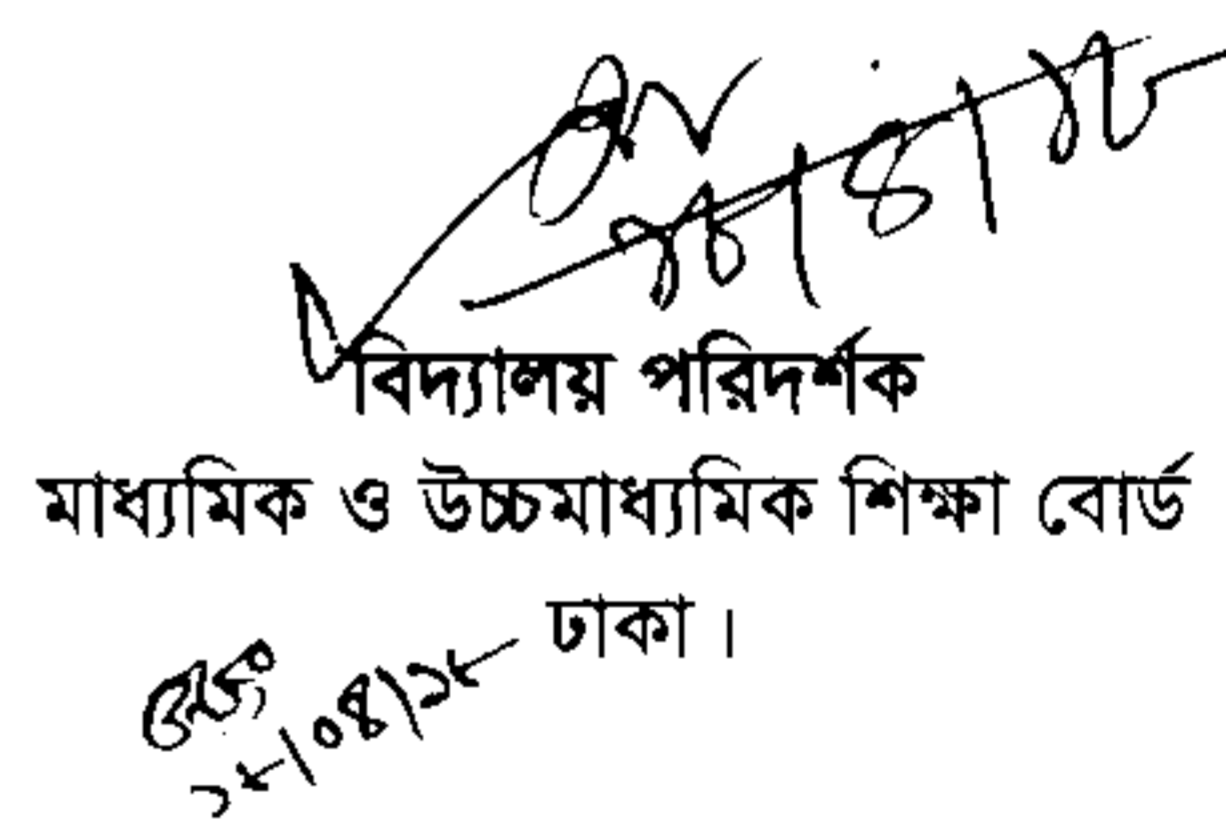 ১৮/৪/১৮
বিদ্যালয় পরিদর্শক
মাধ্যমিক ও উচ্চমাধ্যমিক শিক্ষা বোর্ড
ঢাকা।
১৮/০৪/১৮